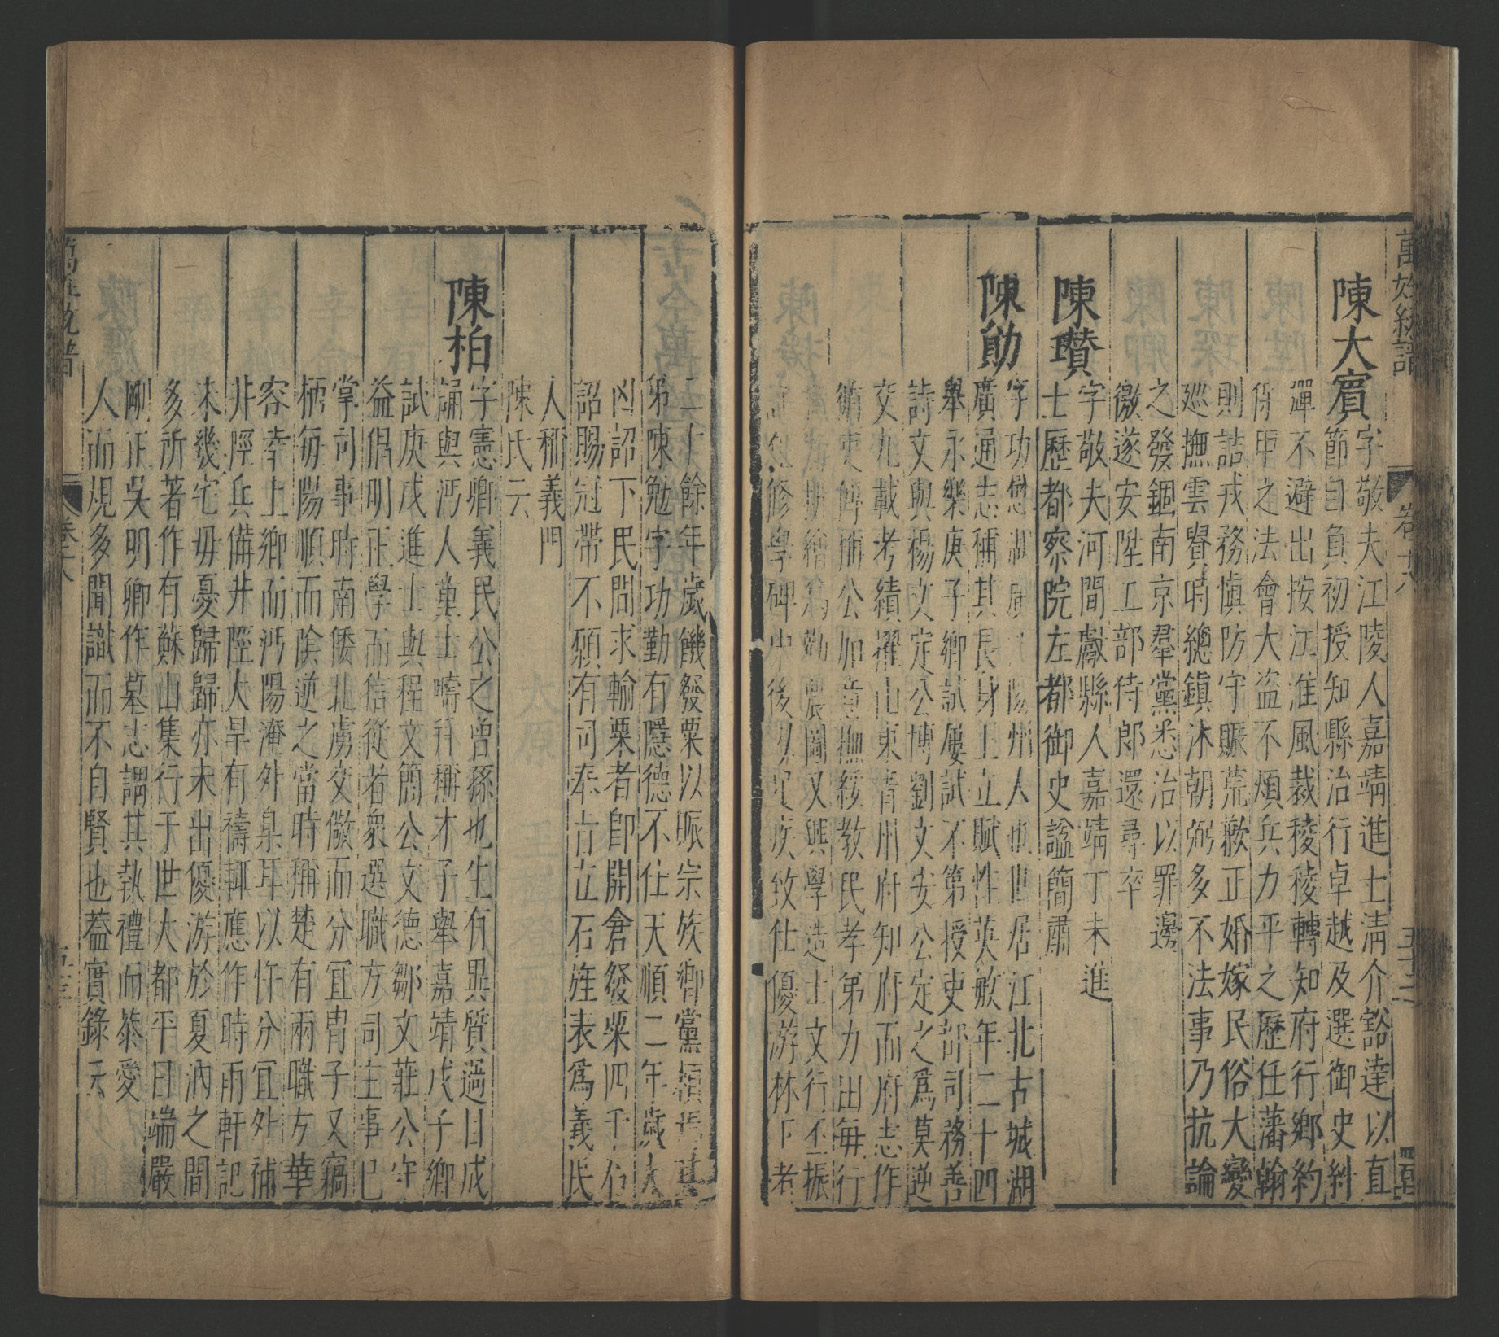 萬姓統譜
卷十八
陳大賓
字敬夫江陵人嘉靖進士清介豁達以直
節自負初授知縣治行卓越及選御史糾
彈不避出按江淮風裁稜稜轉知府行鄉約
保甲之法會大盜不煩兵力平之歷任藩翰
則詰戎務慎防守賑荒歉正婚嫁民俗大變
巡撫雲貴時總鎮沐朝弼多不法事乃抗論
之發錮南京羣黨悉治以罪邊
徼遂安陞工部侍郎還尋卒
陳瓚
字敬夫河間獻縣人嘉靖丁未進
士歷都察院左都御史謚簡肅
陳勛
字功懋湖廣 陽州人也世居江北古城湖
廣通志稱其長身玉立賦性英敏年二十四
舉永樂庚子鄉試屢試不第授吏部司務善
詩文與楊文定公博劉文安公定之為莫逆
交九載考績擢山東青州府知府而府志作
循吏傳稱公加意撫綏教民孝弟力田每行
勸農圃又興學造士文行丕振
修學碑中後 致仕優游林下者
二十餘年歲饑發粟以賑宗族鄉黨
弟陳勉字功勤有隱德不仕天順二年歲大
凶詔下民間求輸粟者即開倉發粟四千石
詔賜冠帶不願有司奉旨立石旌表為義民
人稱義門
陳氏云
陳柏
字憲卿義民公之曾孫也生有異質過目成
誦與沔人童士疇幷稱才子舉嘉靖戊子鄉
試庚戌進士與程文簡公文德鄒文莊公守
益倡明正學而信從者衆選職方司主事已
掌司事時南倭北虜交儆而分宜冑子又竊
柄每陽順而陰逆之當時稱楚有兩職方華
容幸上鄉而沔陽淹外臬耳以忤分宜外補
井陘兵備井陘大旱有禱輒應作時雨軒記
未幾宅毋憂歸歸亦未出優游於夏汭之間
多所著作有蘇山集行于世大都平日端嚴
剛正吳明卿作墓志謂其執禮而恭愛
人而規多聞識而不自賢也蓋實錄云
萬姓統譜
卷十八